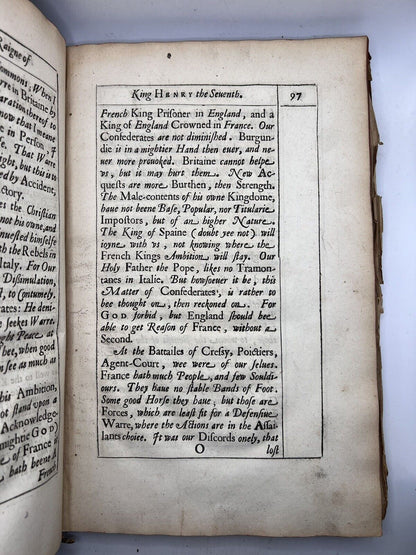 Raigne of
ommons, When I
rre in Britaine, by
aration hereof to
now that I meane
e in Person, I
That Warre
ught, but this is
ed by Accident,
ctory.
es the Christian
not his owne, and
nuested himselfe
th the Rebels in
Italy. For Our
Dissimulation,
t, to Contumely.
rates: He deni-
e seekes Warre.
ght Peace at
ee, when good
n see as much as
his Ambition,
ot stand upon a
Acknowledge-
mightie GOD)
of France is
hath beene a
French
King HENRY the Seuenth.
97
French King Prisoner in England, and a
King of England Crowned in France. Our
Confederates are not diminished. Burgun-
die is in a mightier Hand then euer, and ne-
uer more prouoked. Britaine cannot helpe
vs, but it may hurt them. New Ac-
quests are more Burthen, then Strength.
The Male-contents of his owne Kingdome,
haue not beene Base, Popular, nor Titularie
Impostors, but of an higher Nature.
The King of Spaine (doubt yee not) will
ioyne with vs, not knowing where the
French Kings Ambition will stay. Our
Holy Father the Pope, likes no Tramon-
tanes in Italie. But howsoeuer it be, this
Matter of Confederates, is rather to
bee thought on, then reckoned on. For
GOD forbid, but England should bee
able to get Reason of France, without a
Second.
At the Battailes of Cressy, Poictiers,
Agent-Court, wee were of our selues.
France hath much People, and few Souldi-
ours. They haue no stable Bands of Foot.
Some good Horse they haue; but those are
Forces, which are least fit for a Defensiue
Warre, where the Actions are in the Assai-
lants choice. It was our Discords onely, that
O
lost